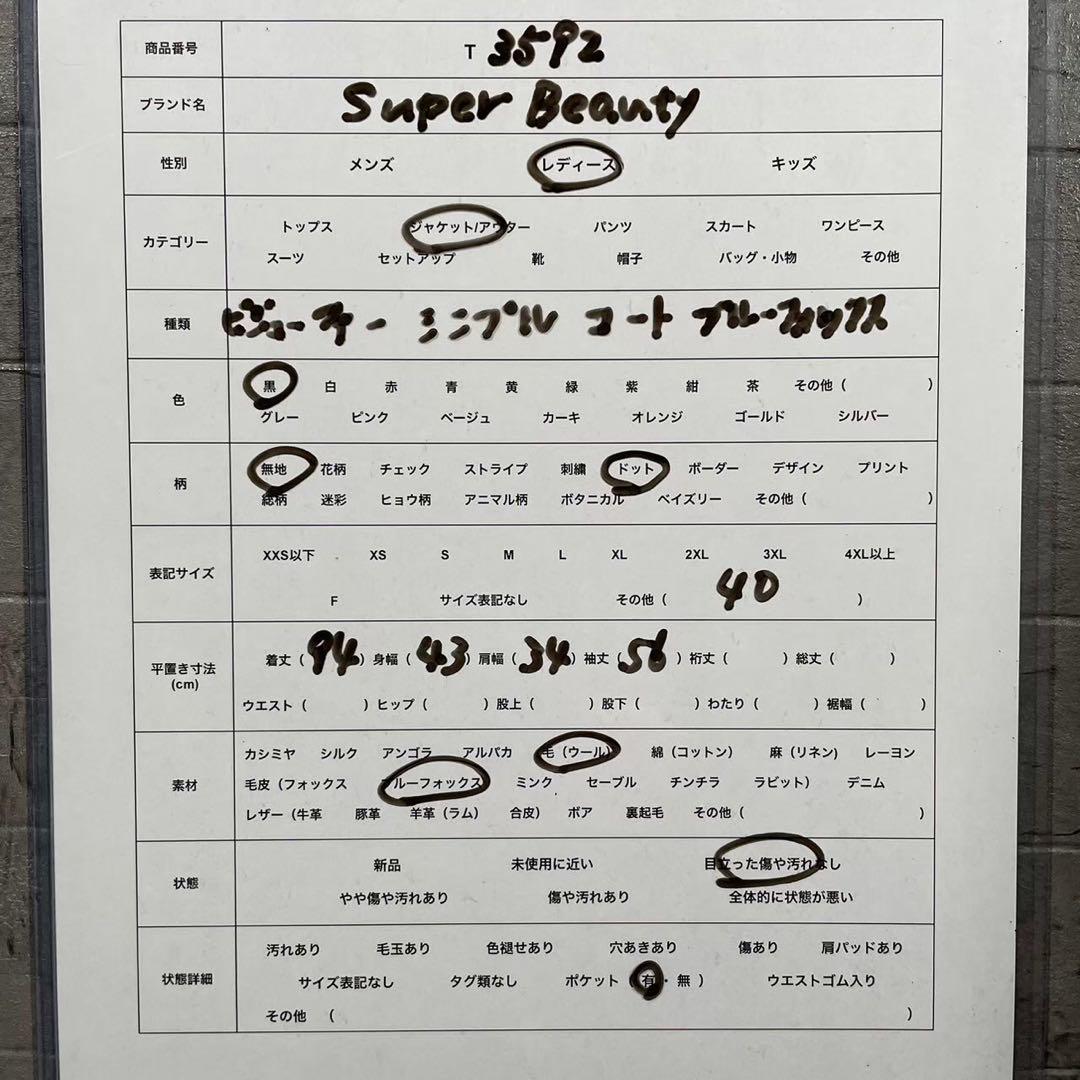 商品番号 T 3592
ブランド名 Super Beauty
性別 メンズ レディース キッズ
カテゴリー
トップス ジャケット/アウター パンツ スカート ワンピース
スーツ セットアップ 靴 帽子 バッグ・小物 その他
種類 ビジューティー シンプル コート ブルーフォックス
色
黒 白 赤 青 黄 緑 紫 紺 茶 その他( )
グレー ピンク ベージュ カーキ オレンジ ゴールド シルバー
柄
無地 花柄 チェック ストライプ 刺繍 ドット ボーダー デザイン プリント
総柄 迷彩 ヒョウ柄 アニマル柄 ボタニカル ペイズリー その他( )
表記サイズ
XXS以下 XS S M L XL 2XL 3XL 4XL以上
F サイズ表記なし その他( 40 )
平置き寸法
(cm)
着丈(94)身幅(43)肩幅(34)袖丈(56)裄丈( )総丈( )
ウエスト( )ヒップ( )股上( )股下( )わたり( )裾幅( )
素材
カシミヤ シルク アンゴラ アルパカ 毛(ウール) 綿(コットン) 麻(リネン) レーヨン
毛皮(フォックス ブルーフォックス ミンク セーブル チンチラ ラビット) デニム
レザー(牛革 豚革 羊革(ラム) 合皮) ボア 裏起毛 その他( )
状態
新品 未使用に近い 目立った傷や汚れなし
やや傷や汚れあり 傷や汚れあり 全体的に状態が悪い
状態詳細
汚れあり 毛玉あり 色褪せあり 穴あきあり 傷あり 肩パッドあり
サイズ表記なし タグ類なし ポケット(有・無) ウエストゴム入り
その他 ( )